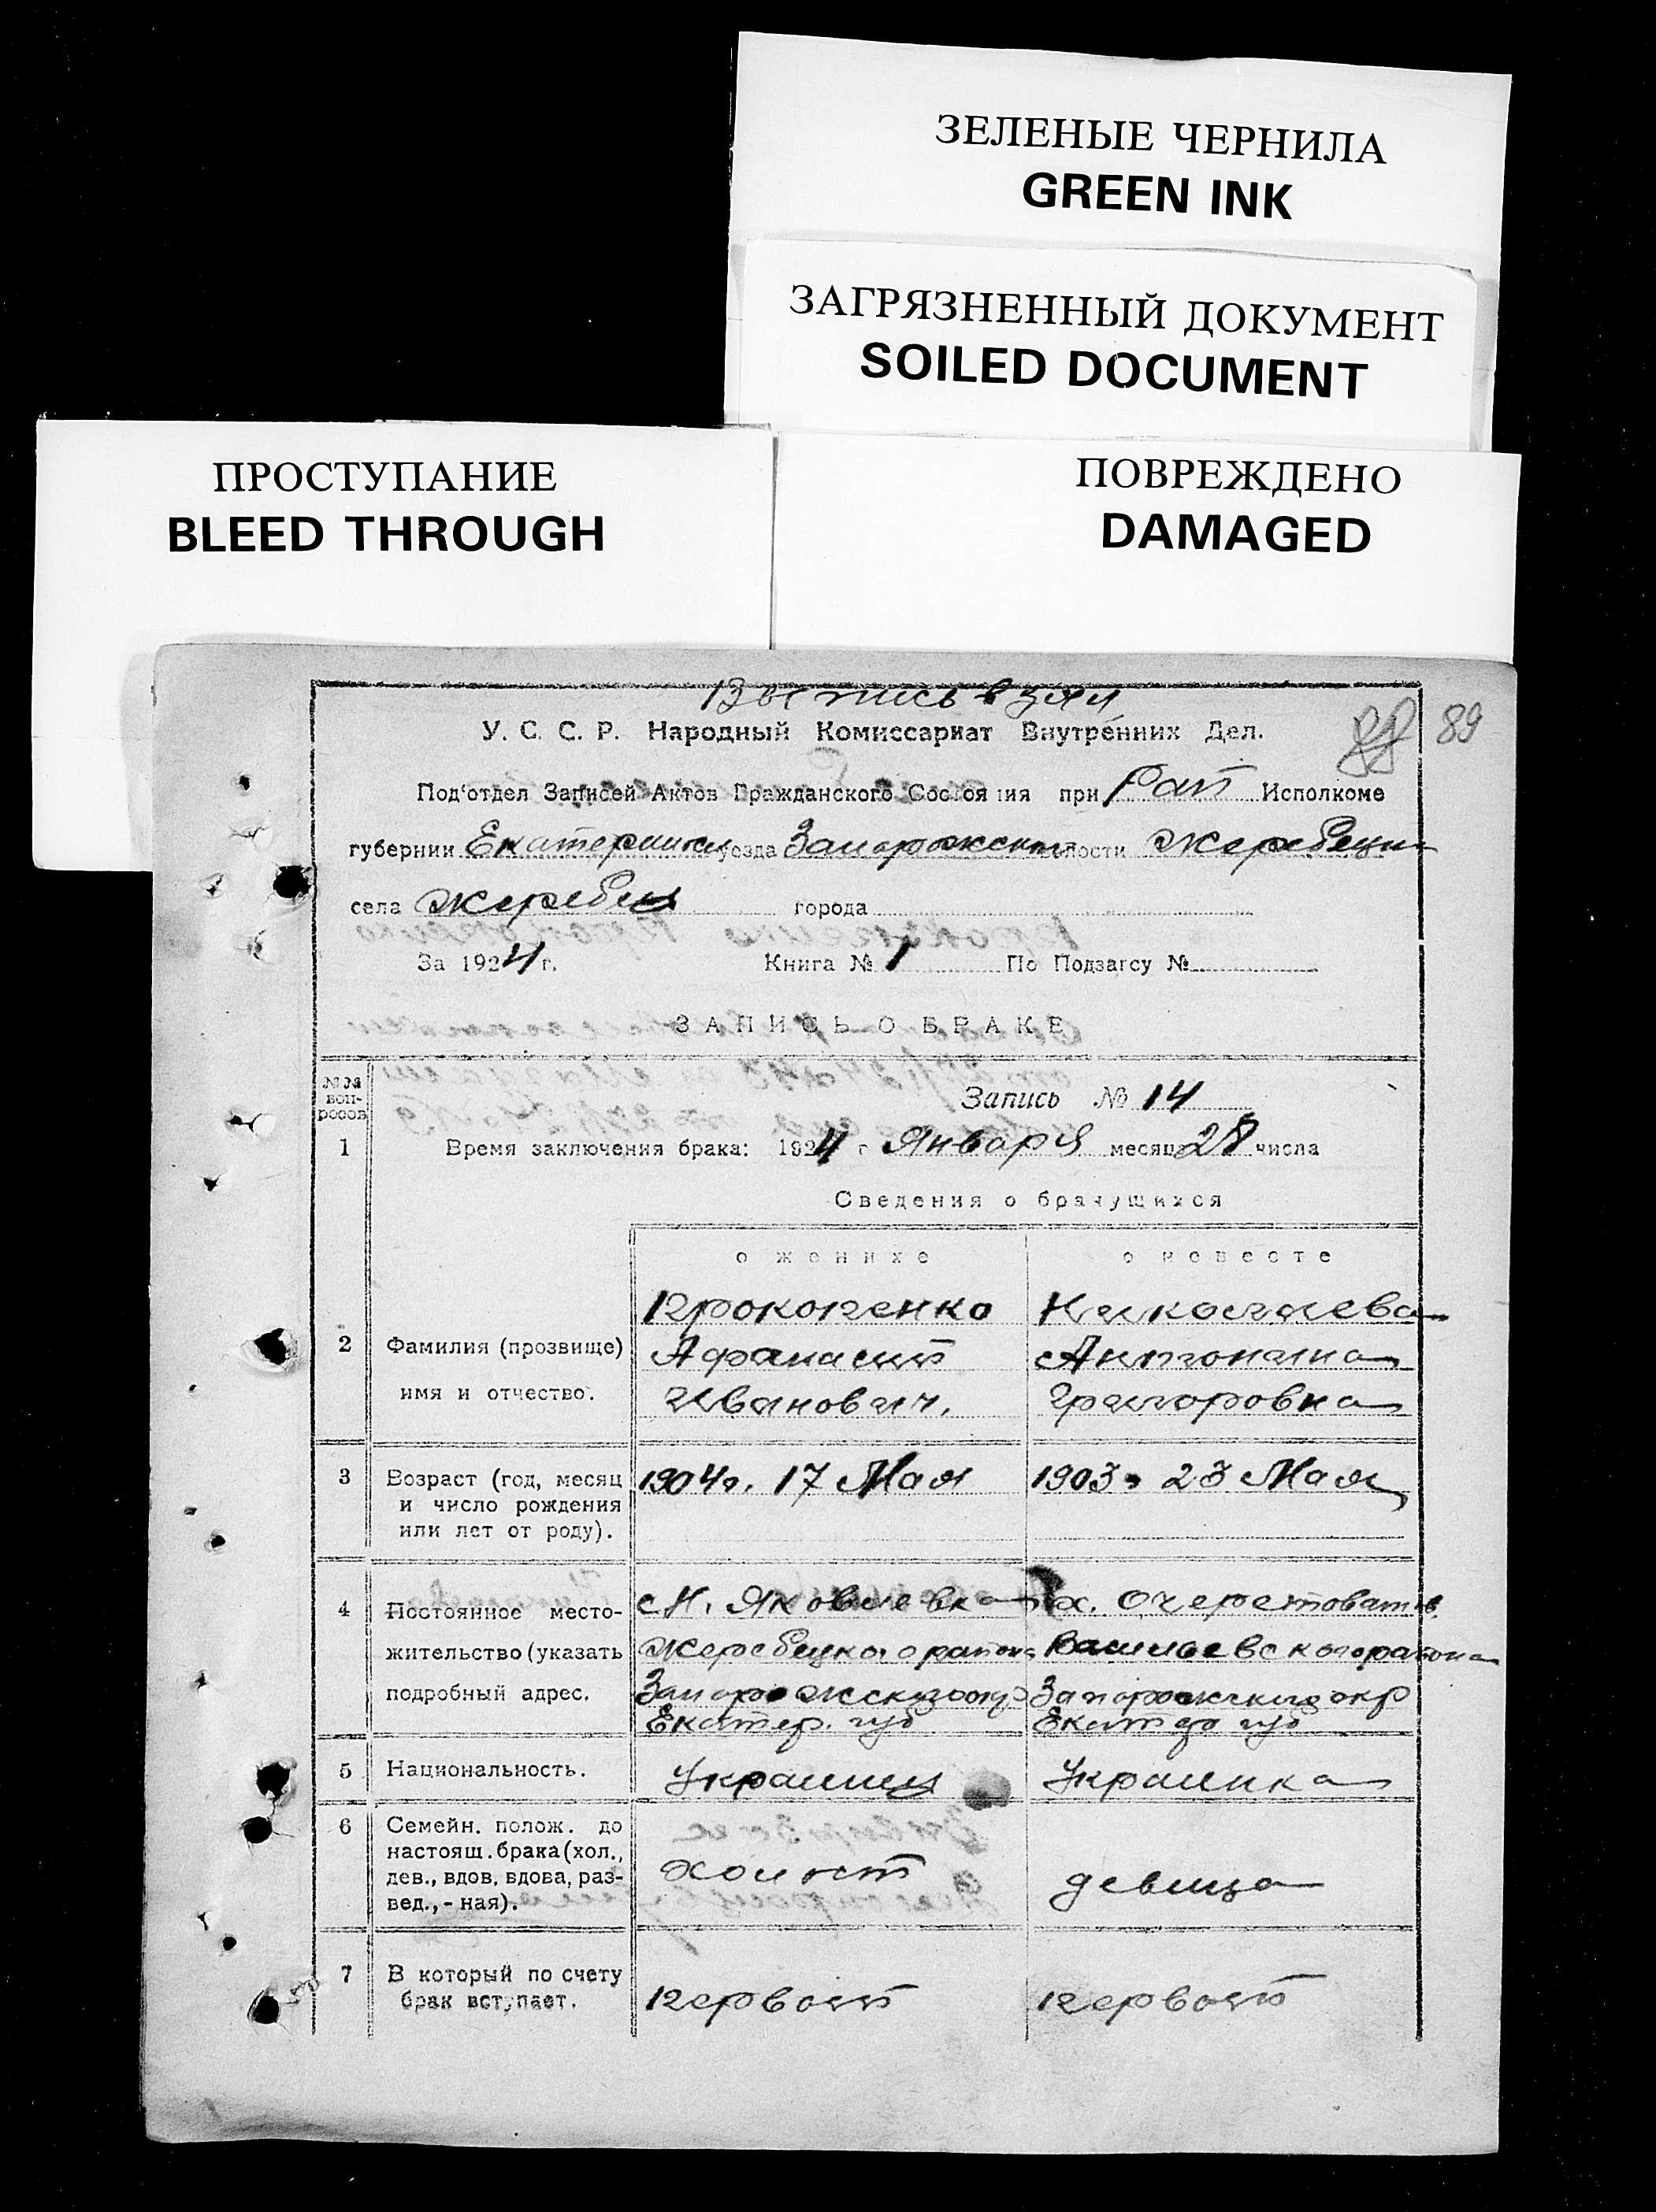 ЗЕЛЕНЫЕ ЧЕРНИЛА
GREEN INK
ЗАГРЯЗНЕННЫЙ ДОКУМЕНТ
SOILED DOCUMENT
ПРОСТУПАНИЕ
BLEED THROUGH
ПОВРЕЖДЕНО
DAMAGED
Выпись взял
У. С. С. Р. Народный Комиссариат Внутренних Дел.
89
Под'отдел Записей Актов Гражданского Состояния при Рай Исполкоме
губернии Екатеринос уезда Запорожского волости Жеребецк
села Жеребец города
За 1924 г. Книга № 1 По Подзагсу №
ЗАПИСЬ О БРАКЕ
№№ воп-росов
Запись № 14
1 Время заключения брака: 1924 г Января месяц 28 числа
Сведения о брачущихся
о женихе о невесте
Прокопенко Николаева
2 Фамилия (прозвище) Афанасий Антонина
имя и отчество. Иванович. Григоровна
3 Возраст (год, месяц 1904г. 17 Мая 1903г 23 Мая
и число рождения
или лет от роду).
4 Постоянное место- с Н. Яковлевка х. Очеретоват
жительство (указать Жеребецкого района Васильевского района
подробный адрес. Запорожского окр Запорожского окр
Екатер. губ Екатер губ
5 Национальность. Украинец Украинка
6 Семейн. полож. до
настоящ. брака (хол.,
дев., вдов, вдова, раз- холост девица
вед., - ная).
7 В который по счету
брак вступает. первый первый